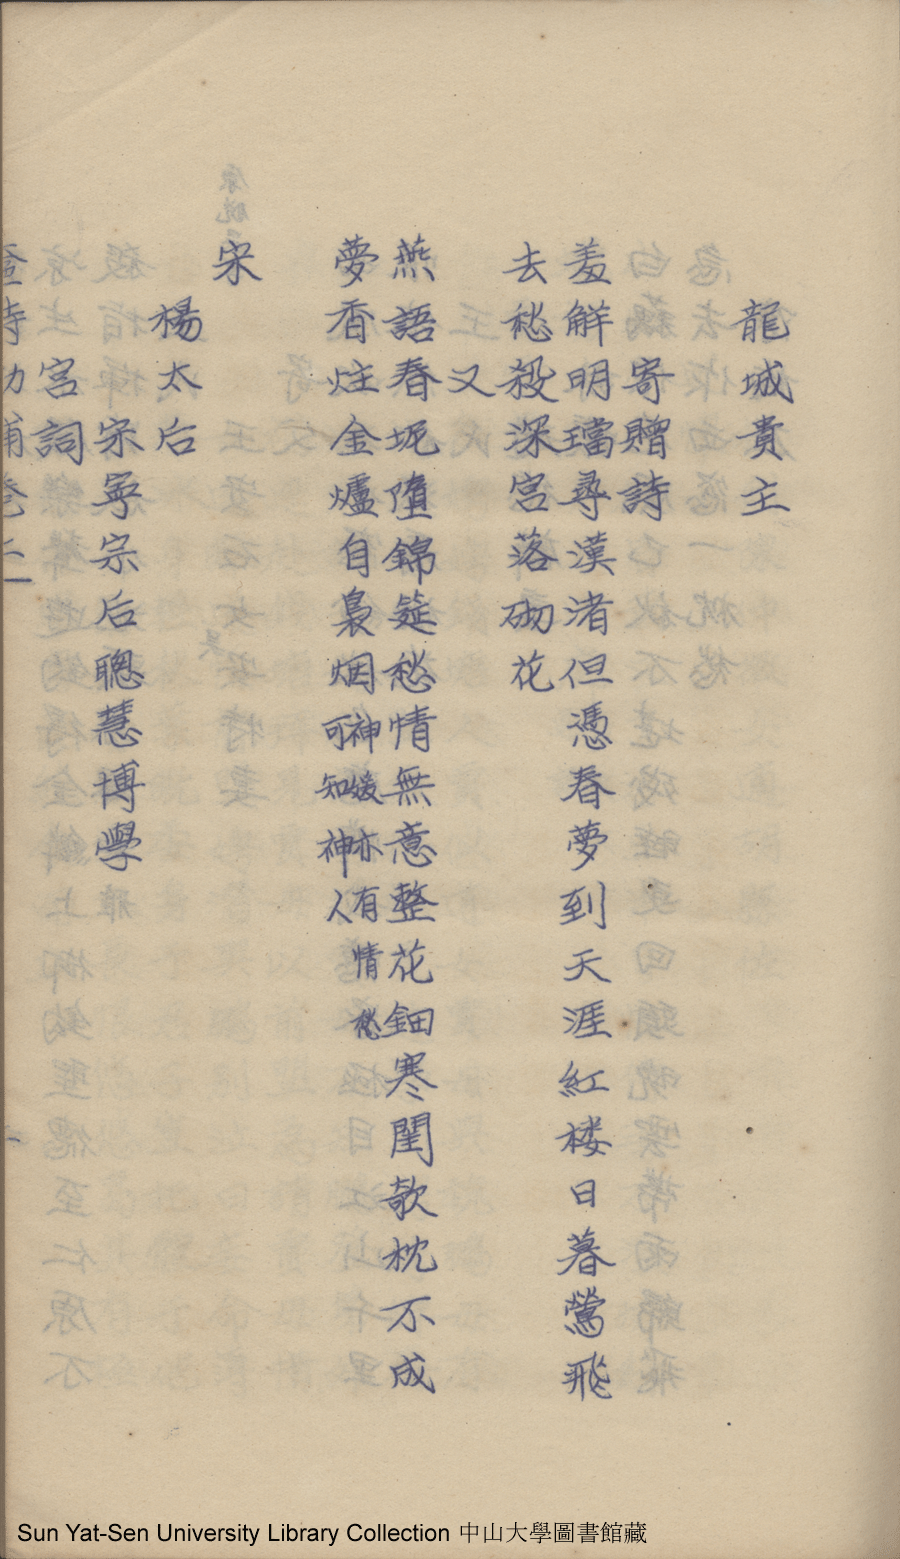 龍城貴主
寄贈詩
羞解明璫尋漢渚但憑春夢到天涯紅楼日暮鶯飛
去愁殺深宮落砌花
又
燕語春坭墮錦筵愁情無意整花鈿寒閨欹枕不成
夢香炷金爐自裊烟神媛亦有情愁可知神人
宋
楊太后
宋寧宗后聰慧博學
宮詞
Sun Yat-Sen University Library Collection 中山大學圖書館藏